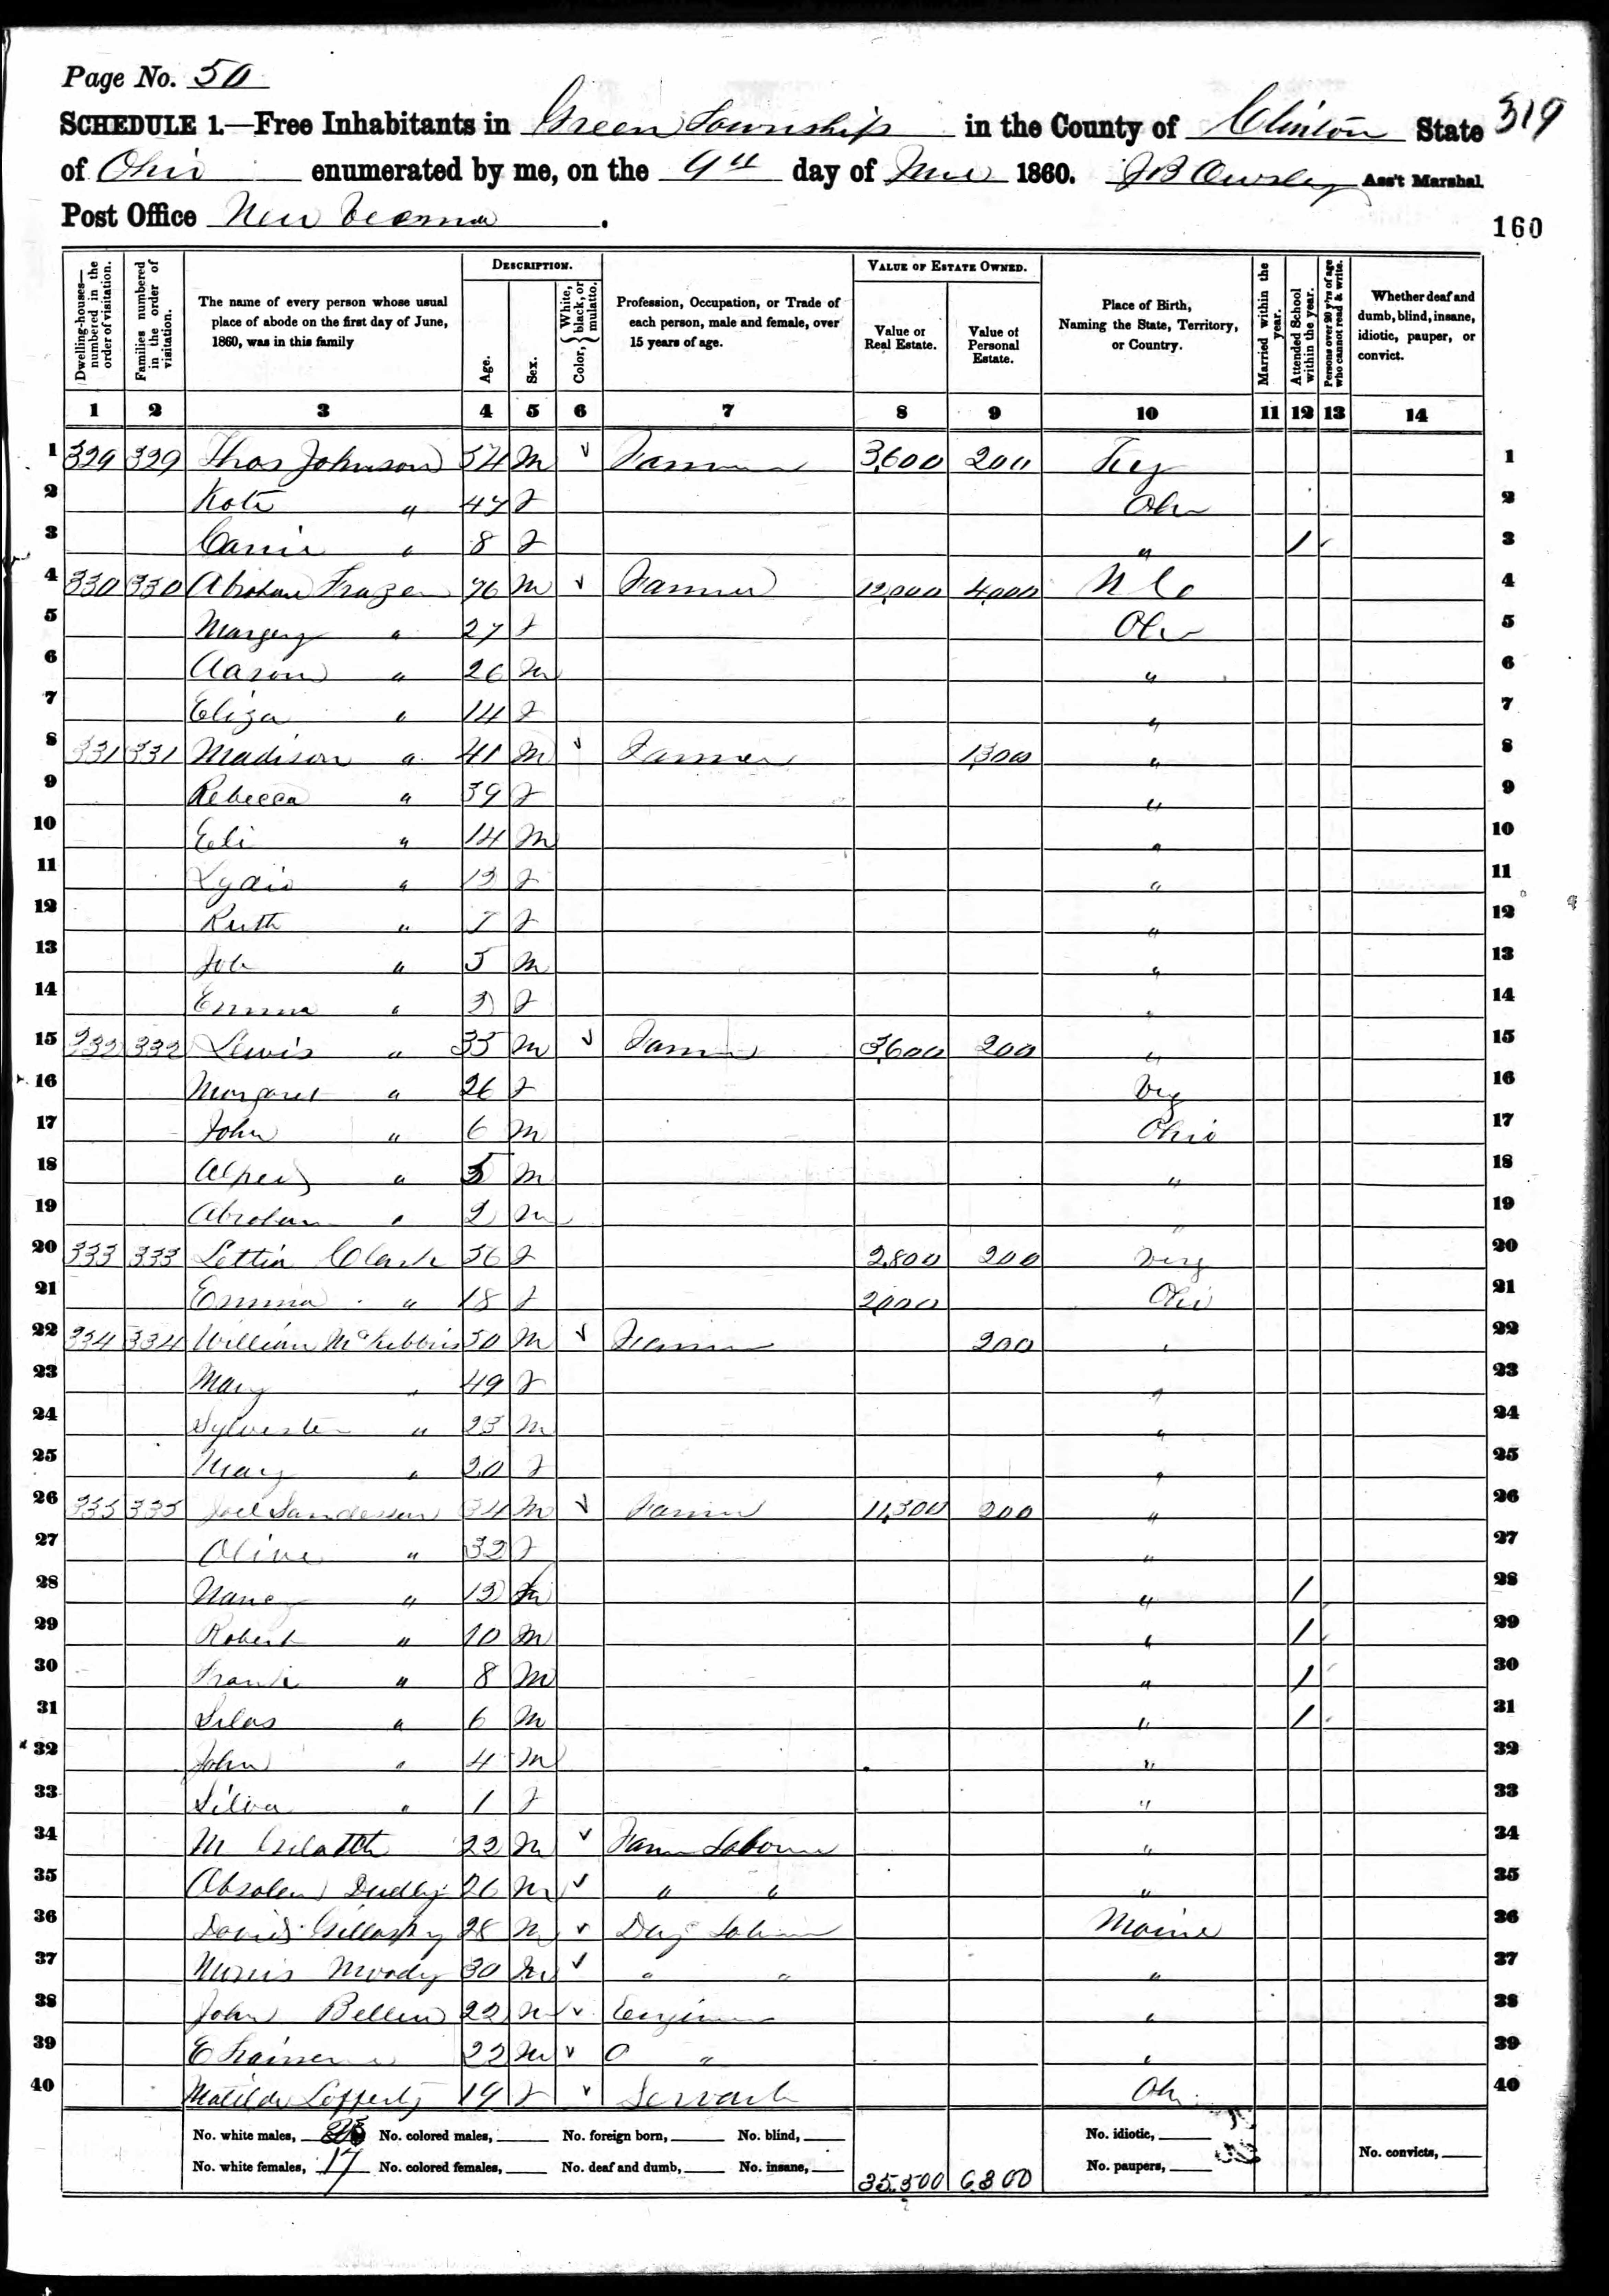 Page No. 50
SCHEDULE 1.—Free Inhabitants in Green Township in the County of Clinton State 319
of Ohio enumerated by me, on the 9th day of June 1860. J B Owsley Ass't Marshal.
Post Office New Vienna.
160
Dwelling-houses—numbered in the order of visitation.
Families numbered in the order of visitation.
The name of every person whose usual place of abode on the first day of June, 1860, was in this family
DESCRIPTION.
Age.
Sex.
Color, { White, black, or mulatto.
Profession, Occupation, or Trade of each person, male and female, over 15 years of age.
VALUE OF ESTATE OWNED.
Value of Real Estate.
Value of Personal Estate.
Place of Birth, Naming the State, Territory, or Country.
Married within the year.
Attended School within the year.
Persons over 20 y'rs of age who cannot read & write.
Whether deaf and dumb, blind, insane, idiotic, pauper, or convict.
1 2 3 4 5 6 7 8 9 10 11 12 13 14
1 329 329 Thos Johnson 54 M Farmer 3,600 200 1
2 Kate " 47 f Ohio 2
3 Carrie " 8 f " / 3
4 330 330 Abraham Frazer 76 M Farmer 12,000 4,000 N C 4
5 Margery " 27 f Ohio 5
6 Aaron " 26 M " 6
7 Eliza " 14 f " 7
8 331 331 Madison " 41 M Farmer 1,300 " 8
9 Rebecca " 39 f " 9
10 Eli " 14 M " 10
11 Lydia " f " 11
12 Ruth " 7 f " 12
13 " 5 M " 13
14 Emma " f " 14
15 332 332 Lewis " 35 M Farmer 3,600 200 " 15
16 Margaret " 26 f Virg 16
17 John " 6 M Ohio 17
18 Alfred " M " 18
19 Abraham " 2 M " 19
20 333 333 Clark f 2,800 200 Virg 20
21 Emma " 18 f 2,000 Ohio 21
22 334 334 William McKibbin 50 M Farmer 200 " 22
23 Mary " 49 f " 23
24 Sylvester " 23 M " 24
25 Mary " 20 f " 25
26 335 335 Joel Sanderson 34 M Farmer 11,500 200 " 26
27 Olive " 32 f " 27
28 Nancy " " / 28
29 Robert " 10 M " / 29
30 Frank " 8 M " / 30
31 Silas " 6 M " / 31
32 John " 4 M " 32
33 " 1 f " 33
34 M 22 M Farm Laborer " 34
35 26 M " " " 35
36 David 28 M Day Laborer Maine 36
37 Moody 30 M " " " 37
38 John 22 M Engineer " 38
39 E 22 M " " 39
40 Matilda Lafferty 19 f Servant Oh 40
No. white males, No. colored males, No. foreign born, No. blind, No. idiotic,
No. white females, 17 No. colored females, No. deaf and dumb, No. insane, 35,500 6300 No. paupers, No. convicts,